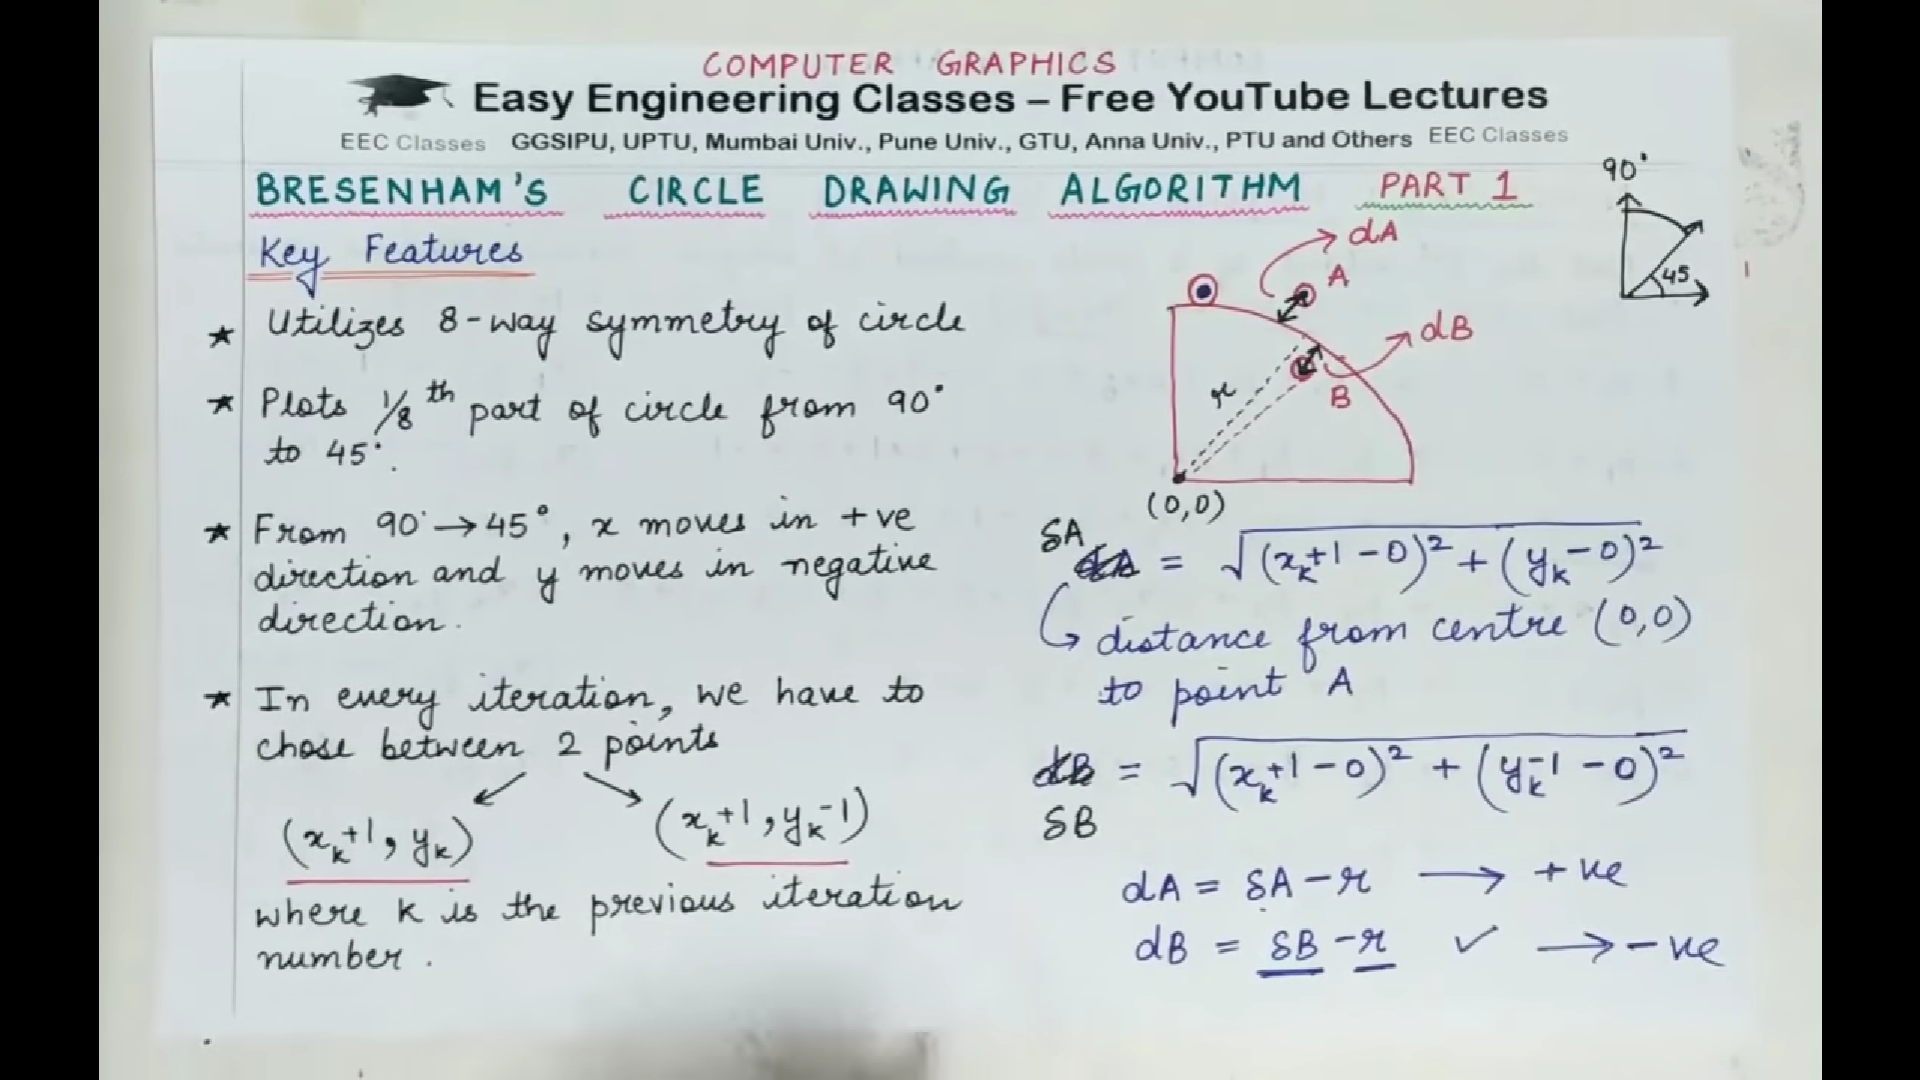 COMPUTER GRAPHICS
Easy Engineering Classes – Free YouTube Lectures
EEC Classes GGSIPU, UPTU, Mumbai Univ., Pune Univ., GTU, Anna Univ., PTU and Others EEC Classes
BRESENHAM'S CIRCLE DRAWING ALGORITHM PART 1
Key Features
★ Utilizes 8-way symmetry of circle
★ Plots 1/8th part of circle from 90°
to 45°.
★ From 90° → 45°, x moves in +ve
direction and y moves in negative
direction.
★ In every iteration, we have to
chose between 2 points
(xₖ+1, yₖ) (xₖ+1, yₖ-1)
where k is the previous iteration
number.
90°
45
dA
A
dB
B
r
(0,0)
δA
dA = √(xₖ+1-0)² + (yₖ-0)²
distance from centre (0,0)
to point A
dB = √(xₖ+1-0)² + (yₖ-1-0)²
δB
dA = δA - r → +ve
dB = δB - r ✓ → -ve